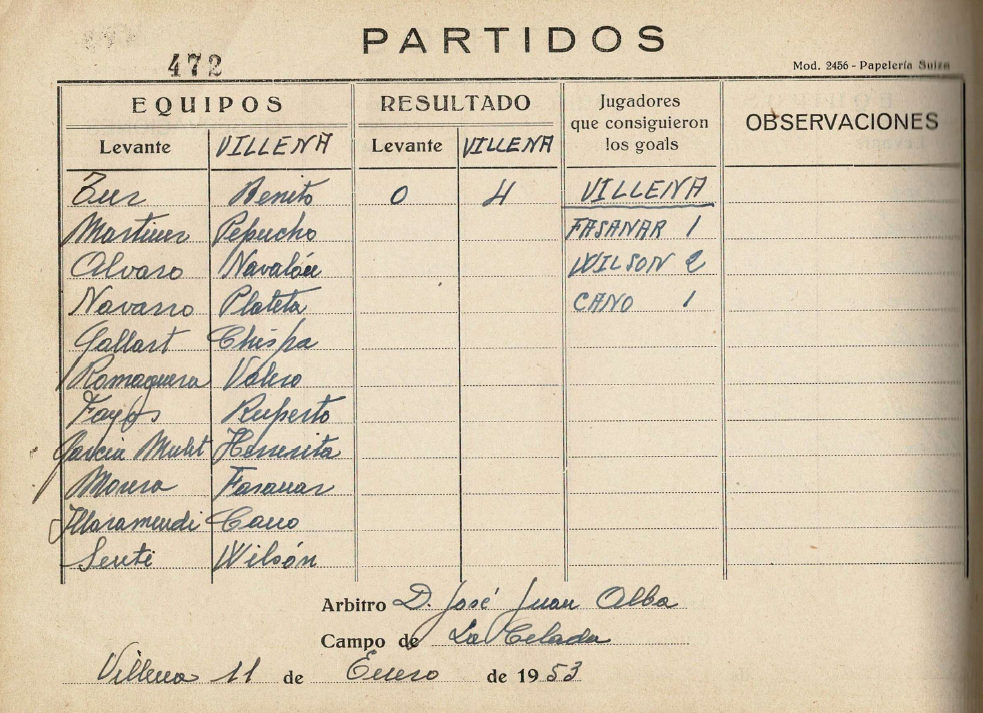 PARTIDOS
472
Mod. 2456 - Papelería Suiza
EQUIPOS RESULTADO Jugadores que consiguieron los goals OBSERVACIONES
Levante VILLENA Levante VILLENA
Zur Benito 0 4 VILLENA
Martinez Pepucho FASANAR 1
Alvaro Navalón WILSON 2
Navarro Plateta CANO 1
Gallart Chispa
Romaguera Valero
Fayos Ruperto
Garcia Mulet
Morera Fasanar
Illaramendi Cano
Senti Wilsón
Arbitro D. José Juan Alba
Campo de La Celada
Villena 11 de Enero de 1953